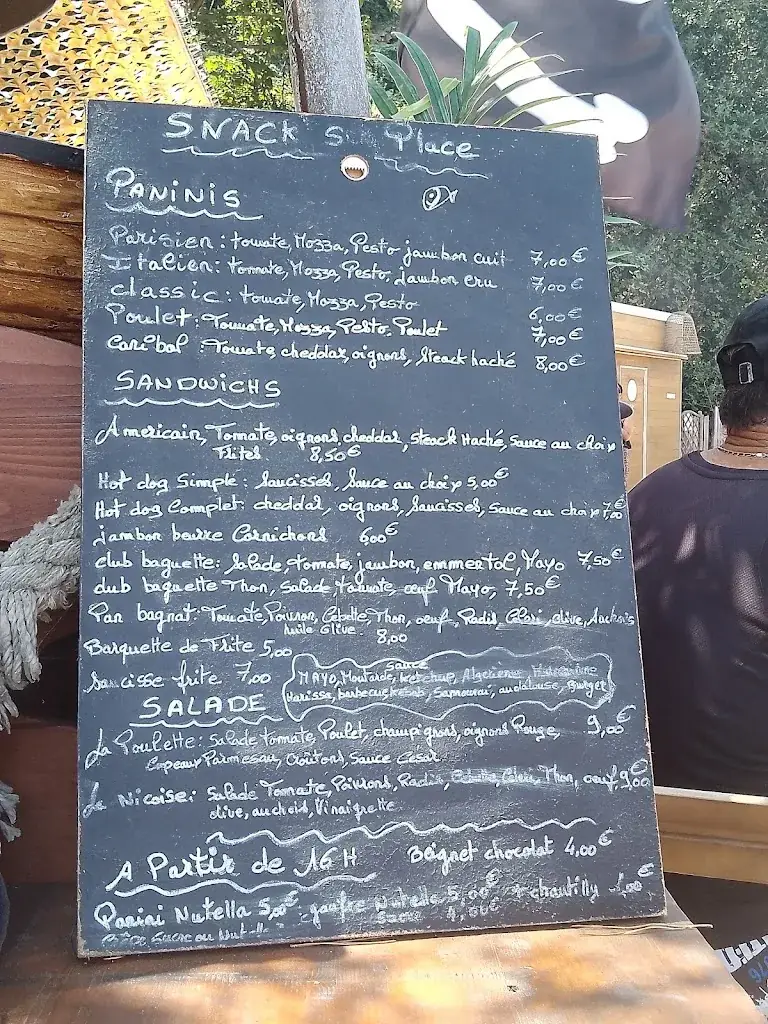 SNACK Place
PANINIS
Parisien: tomate, Mozza, Pesto jambon cuit 7,00€
Italien: tomate, Mozza, Pesto, jambon cru 7,00€
classic: tomate, Mozza, Pesto 6,00€
Poulet: Tomate, Mozza, Pesto, Poulet 7,00€
Caribal: Tomate cheddar, oignons, Steack haché 8,00€
SANDWICHS
Americain, Tomate, oignons, cheddar, Steack Haché, Sauce au choix
Frites 8,50€
Hot dog Simple: Saucisses, Sauce au choix 5,00€
Hot dog Complet: cheddar, oignons, Saucisses, Sauce au choix 7,00
jambon beurre Cornichons 6,00€
club baguette: Salade, tomate, jambon, emmental, Mayo 7,50€
club baguette Thon, Salade tomate, oeuf Mayo, 7,50€
Pan bagnat: Tomate, Poivron, Cebette, Thon, oeuf, Radis, Celeri, olive, Anchois
huile Olive 8,00
Barquette de Frite 5,00
Saucisse frite 7,00
Sauce
MAYO, Moutarde, ketchup, Algerienne
Harissa, barbecue, kebab, Samourai, andalouse, Burger
SALADE
La Poulette: Salade tomate, Poulet, champignons, oignons Rouge, 9,00€
Copeaux Parmesan, Croûtons, Sauce César
La Nicoise: Salade Tomate, Poivrons, Radis, Cebettes, Celeri, Thon, oeuf 9,00€
olive, anchois, Vinaigrette
A Partir de 16 H Beignet chocolat 4,00€
Panini Nutella 5,00€ gaufre Nutella 5,00€ + chantilly 1,00€
Sucre 4,00€
Crêpe Sucre ou Nutella